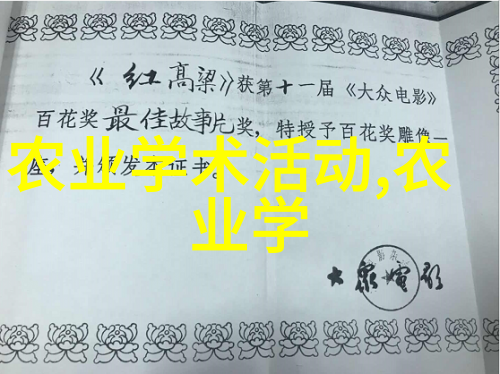 《红高粱》获第十一届《大众电影》
百花奖最佳故事片奖，特授予百花奖雕像一
座，并颁发本证书。
农业学术活动,农
业学
大众电影